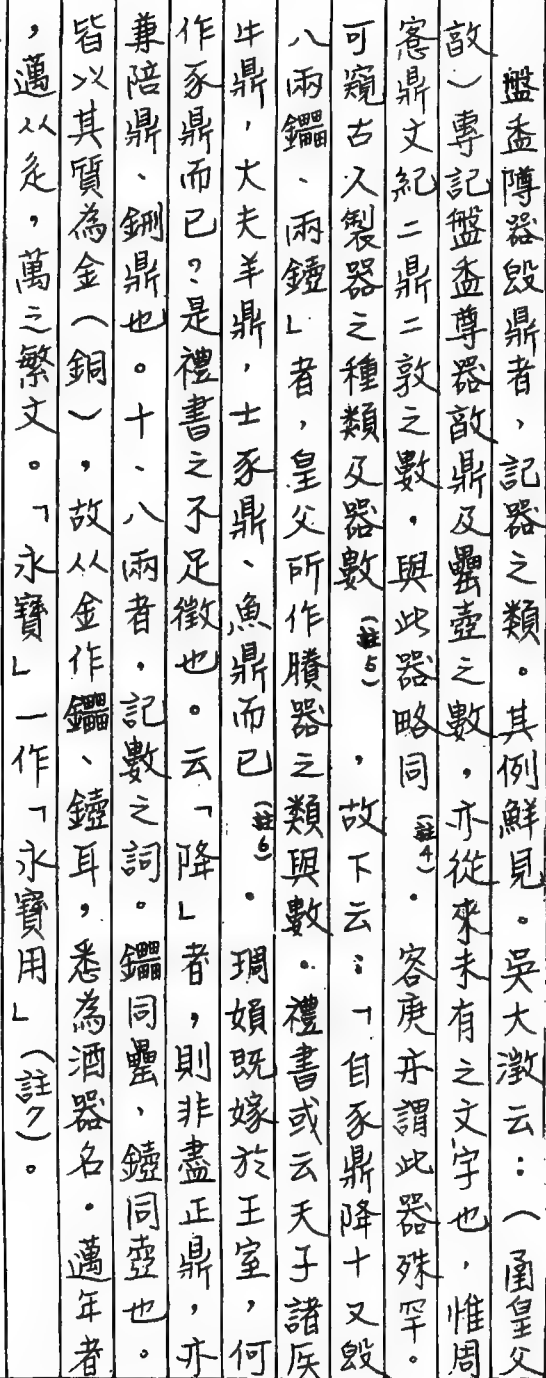 盤盉障器𣪘鼎者，記器之類。其例鮮見。吳大澂云：（圅皇父
敨）專記盤盉尊器敨鼎及罍壺之數，亦從來未有之文字也，惟周
愙鼎文紀二鼎二敦之數，與此器略同（註4）。容庚亦謂此器殊罕。
可窺古人製器之種類及器數（註5），故下云：「自豕鼎降十又𣪘
八兩鑘、兩鐘」者，皇父所作媵器之類與數。禮書或云天子諸矦
牛鼎，大夫羊鼎，士豕鼎、魚鼎而已（註6）。琱娟既嫁於王室，何
作豕鼎而已？是禮書之不足徵也。云「降」者，則非盡正鼎，亦
兼陪鼎、鉶鼎也。十、八兩者，記數之詞。鑘同罍、鐘同壺也。
皆以其質為金（銅），故从金作鑘、鐘耳，悉為酒器名。邁年者
，邁从辵，萬之繁文。「永寶」一作「永寶用」（註7）。